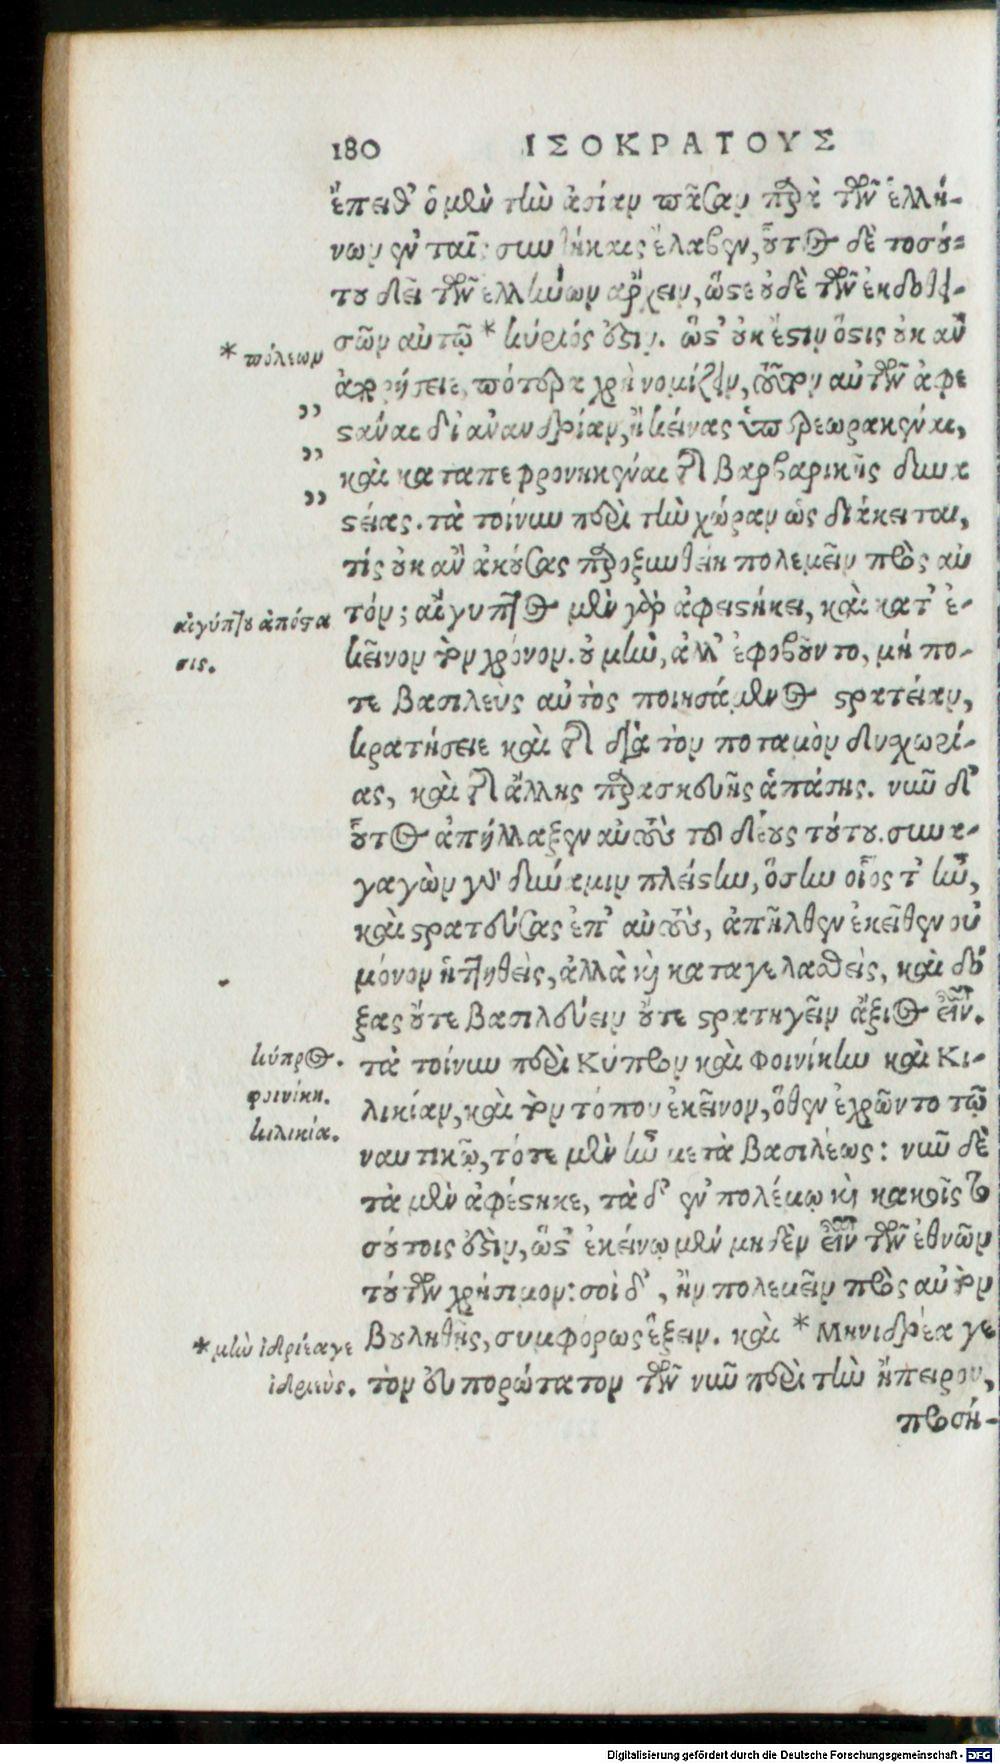 180 ΙΣΟΚΡΑΤΟΥΣ
ἔπειθ' ὁ μὲν τὴν ἀσίαν πᾶσαν παρὰ τῶν ἑλλή-
νων ἐν ταῖς συνθήκαις ἔλαβεν, οὗτος δὲ τοσού-
του δεῖ τῶν ἑλλήνων ἄρχειν, ὥστε οὐδὲ τῶν ἐκδοθει-
σῶν αὐτῷ * κύριός ἐστιν. ὥστ' οὐκ ἔστιν ὅστις οὐκ ἂν
* πόλεων
ἀπορήσειε, πότερα χρὴ νομίζειν, τοῦτον αὐτῶν ἀφε
στάναι δι' ἀνανδρίαν, ἢ κείνας ὑπερεωρακέναι,
καὶ καταπεφρονηκέναι τῆς βαρβαρικῆς δυνα
στείας. τὰ τοίνυν περὶ τὴν χώραν ὡς διάκειται,
τίς οὐκ ἂν ἀκούσας παροξυνθείη πολεμεῖν πρὸς αὐ
τόν; αἴγυπτος μὲν γὰρ ἀφειστήκει, καὶ κατ' ἐ-
αἰγύπτου ἀπόστα
σις.
κεῖνον τὸν χρόνον. οὐ μὴν, ἀλλ' ἐφοβοῦντο, μή πο-
τε βασιλεὺς αὐτὸς ποιησάμενος στρατείαν,
κρατήσειε καὶ τῆς διὰ τὸν ποταμὸν δυσχωρί-
ας, καὶ τῆς ἄλλης παρασκευῆς ἁπάσης. νῦν δ'
οὗτος ἀπήλλαξεν αὐτοὺς τοῦ δέους τούτου. συνα-
γαγὼν γὰρ δύναμιν πλείστην, ὅσην οἷός τ' ἦν,
καὶ στρατεύσας ἐπ' αὐτοὺς, ἀπῆλθεν ἐκεῖθεν οὐ
μόνον ἡττηθεὶς, ἀλλὰ καὶ καταγελασθεὶς, καὶ δό
ξας οὔτε βασιλεύειν οὔτε στρατηγεῖν ἄξιος εἶναι.
τὰ τοίνυν περὶ Κύπρον καὶ Φοινίκην καὶ Κι-
κύπρος.
φοινίκη.
κιλικία.
λικίαν, καὶ τὸν τόπον ἐκεῖνον, ὅθεν ἐχρῶντο τῷ
ναυτικῷ, τότε μὲν ἦν μετὰ βασιλέως: νῦν δὲ
τὰ μὲν ἀφέστηκε, τὰ δ' ἐν πολέμῳ καὶ κακοῖς το
σούτοις ἐστὶν, ὥστ' ἐκείνῳ μὲν μηδὲν εἶναι τῶν ἐθνῶν
τούτων χρήσιμον: σοὶ δ', ἢν πολεμεῖν πρὸς αὐτὸν
βουληθῇς, συμφόρως ἕξειν. καὶ * Μηνιδρέα γε
* μὴν ἰδριέα γε
ἰδριεύς.
τὸν εὐπορώτατον τῶν νῦν περὶ τὴν ἤπειρον,
προσή-
Digitalisierung gefördert durch die Deutsche Forschungsgemeinschaft - DFG